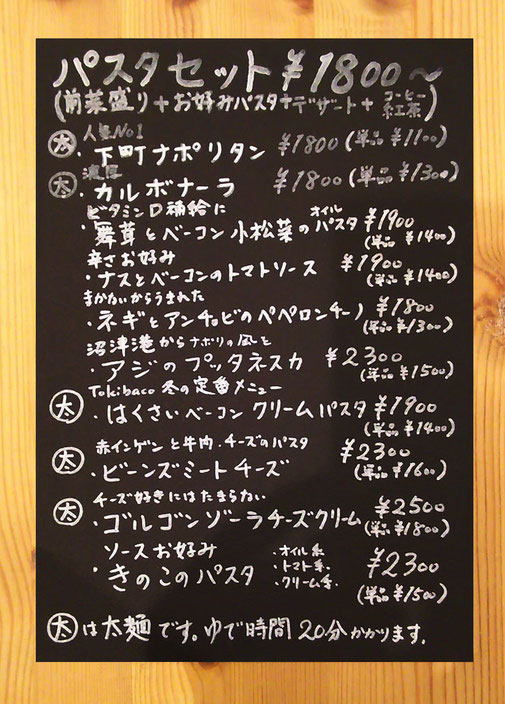 パスタセット ¥1800〜
(前菜盛り+お好みパスタ+デザート+コーヒー 紅茶)
人気No1
㊛・下町ナポリタン ¥1800(単品¥1100)
濃厚
太・カルボナーラ ¥1800(単品¥1300)
ビタミンD補給に
・舞茸とベーコン小松菜のオイルパスタ ¥1900
(単品¥1400)
辛さお好み
・ナスとベーコンのトマトソース ¥1900
(単品¥1400)
まかないからうまれた
・ネギとアンチョビのペペロンチーノ ¥1800
(単品¥1300)
沼津港からナポリの風を
・アジのプッタネスカ ¥2300
(単品¥1500)
Tokibaco 冬の定番メニュー
太・はくさいベーコン クリームパスタ ¥1900
(単品¥1400)
赤インゲンと牛肉・チーズのパスタ
太・ビーンズミートチーズ ¥2300
(単品¥1600)
チーズ好きにはたまらない
太・ゴルゴンゾーラチーズクリーム ¥2500
(単品¥1800)
ソースお好み
・きのこのパスタ ・オイル系 ¥2300
・トマト系
・クリーム系
(単品¥1500)
太は太麺です。ゆで時間20分かかります.